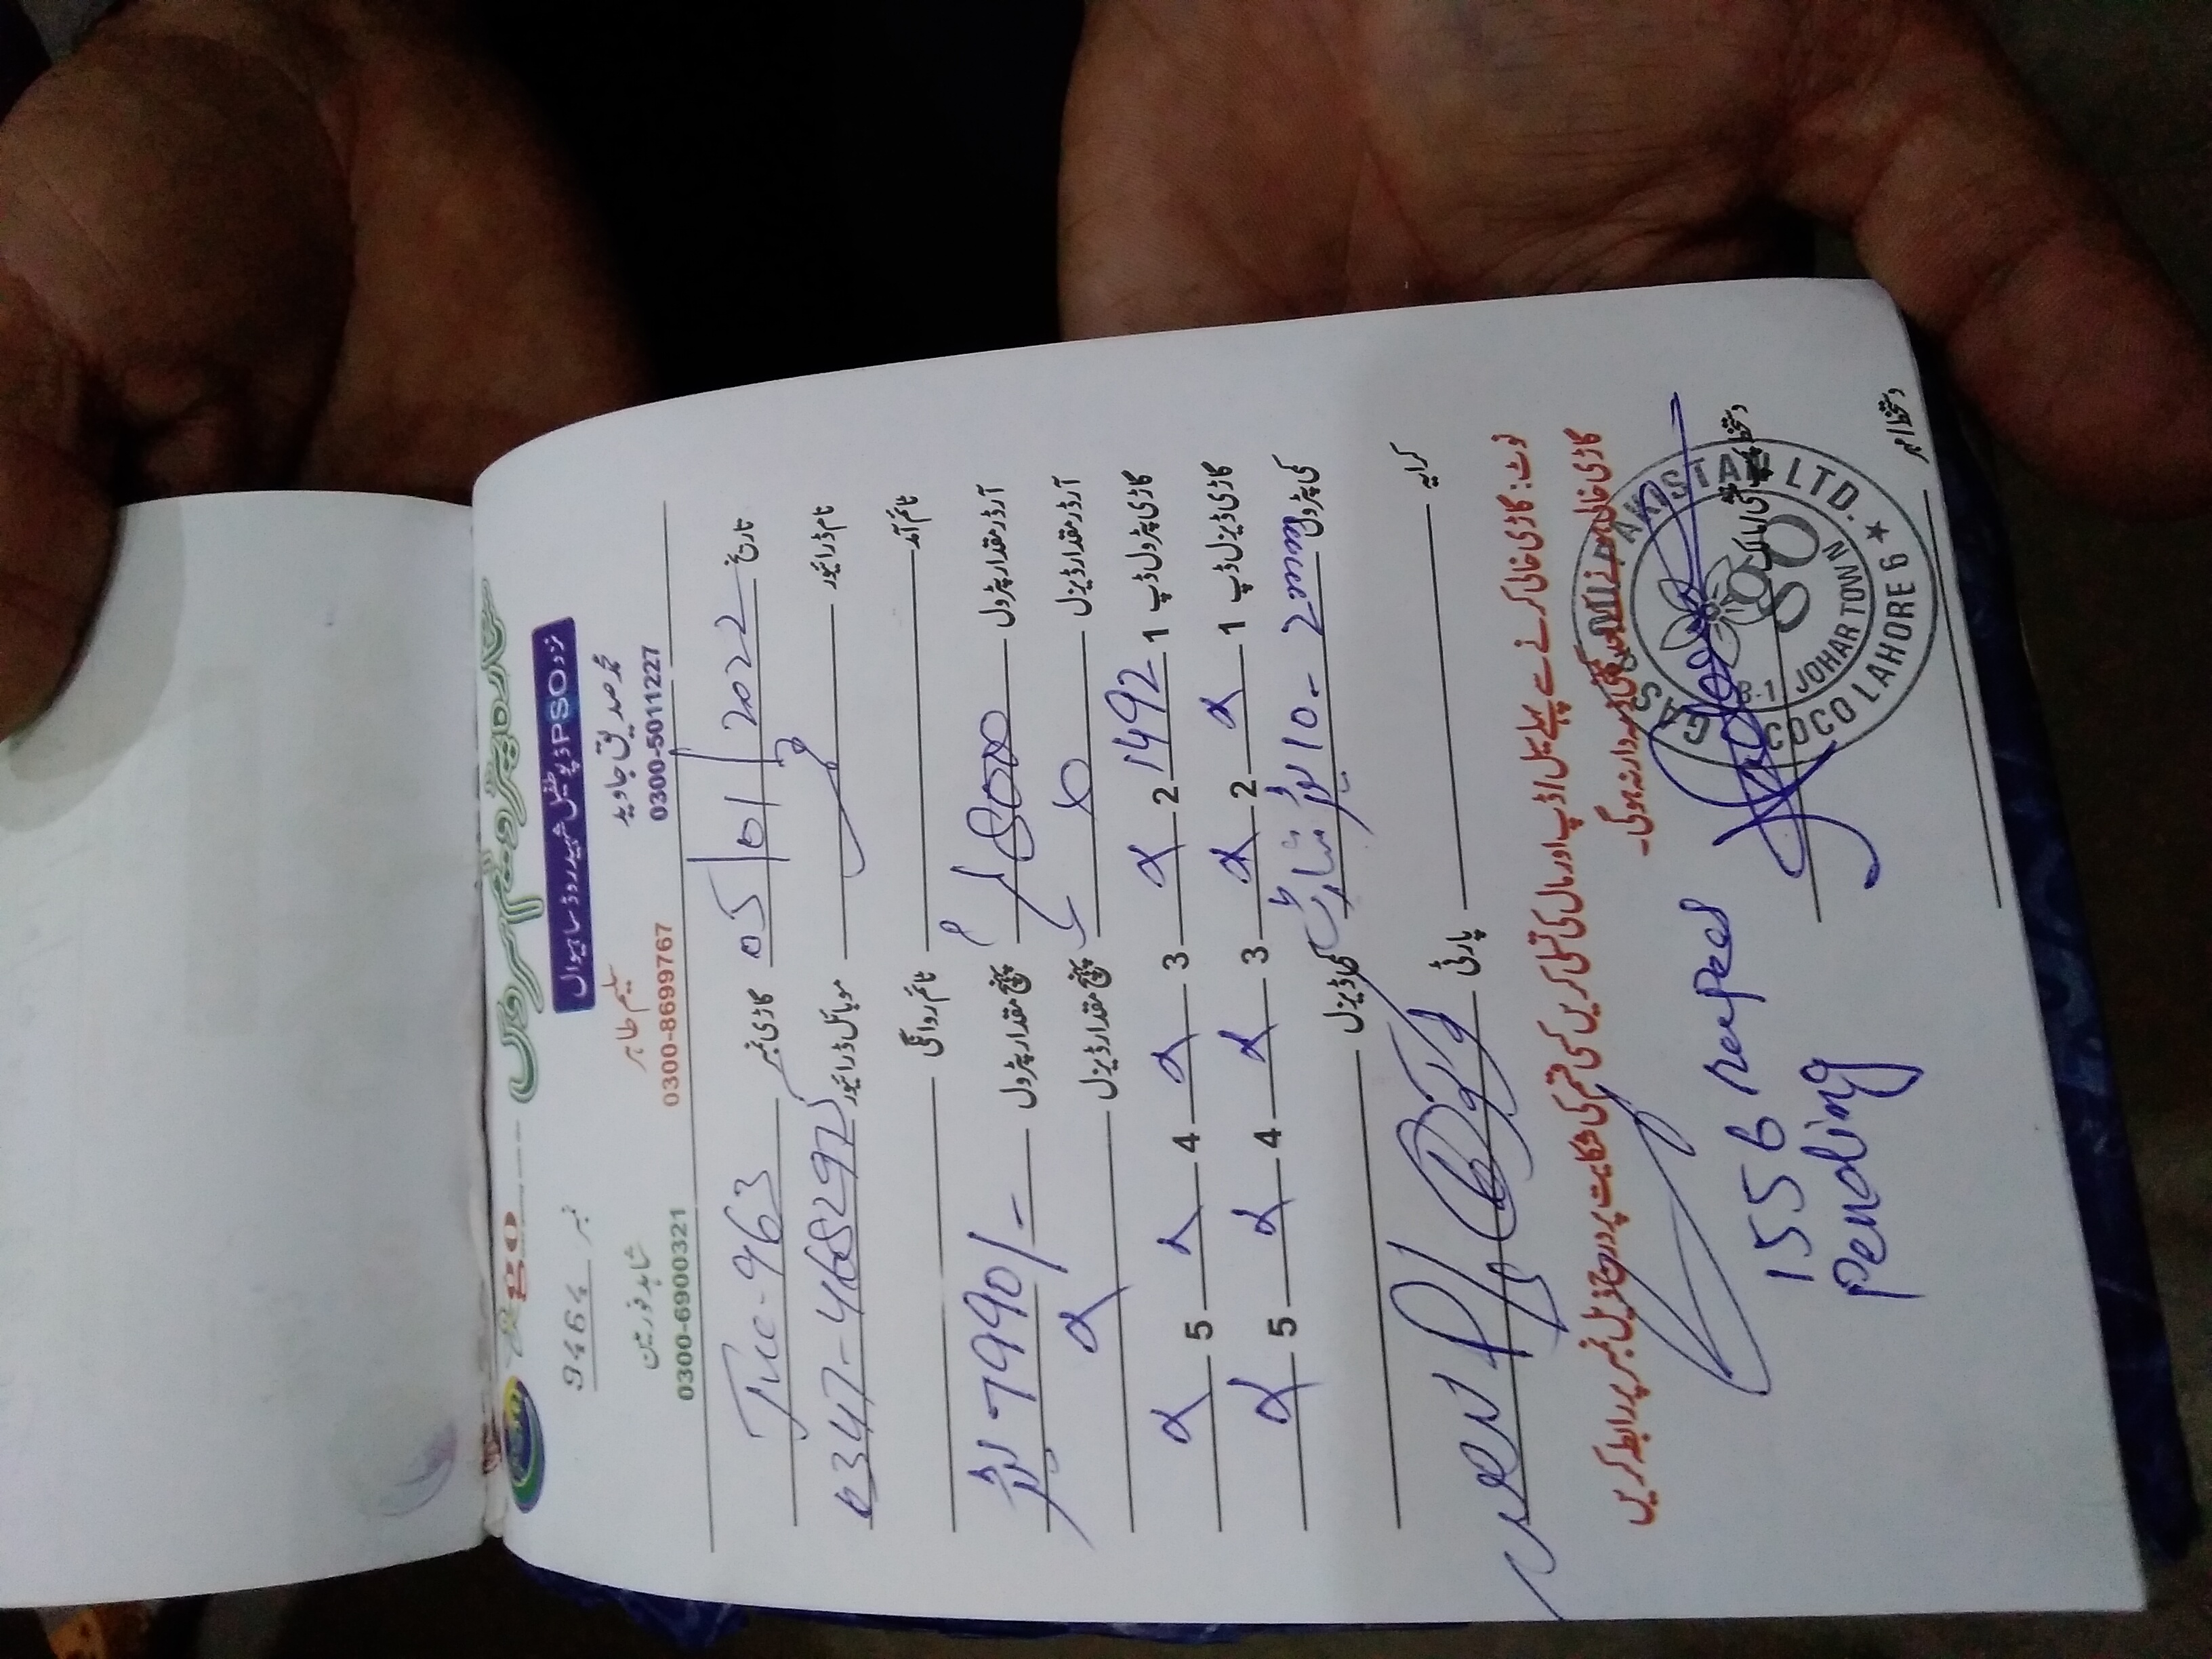 go ستارہ پٹرولیم سروس
نزد PSO ڈپو طفیل شہید روڈ ساہیوال
نمبر 9464
محمد صدیق جاوید سلیم طاہر شاہد فورمین
0300-5011227 0300-8699767 0300-6900321
تاریخ 05/01/2022 گاڑی نمبر 963
نام ڈرائیور موبائل ڈرائیور 0347-4682975
ٹائم آمد ٹائم روانگی
آرڈر مقدار پٹرول 8000 پہنچ مقدار پٹرول 7990/- لیٹر
آرڈر مقدار ڈیزل x پہنچ مقدار ڈیزل x
گاڑی پٹرول ڈپ 1 1492 2 x 3 x 4 x 5 x
گاڑی ڈیزل ڈپ 1 x 2 x 3 x 4 x 5 x
کمی پٹرول 2mm - 10 لیٹر شارٹ کمی ڈیزل
کرایہ پارٹی
نوٹ: گاڑی خالی کرنے سے پہلے سیل/ڈپ اور مال کی تسلی کریں کسی قسم کی شکایت پر درج ذیل نمبر پر رابطہ کریں
گاڑی خالی ہونے کے بعد کمپنی ذمہ دار نہ ہوگی۔
1556 rupees
pending
GAS & OIL PAKISTAN LTD.
COCO LAHORE 6 ★
JOHAR TOWN
GO
دستخط پمپ منشی/مالک
دستخط/مہر